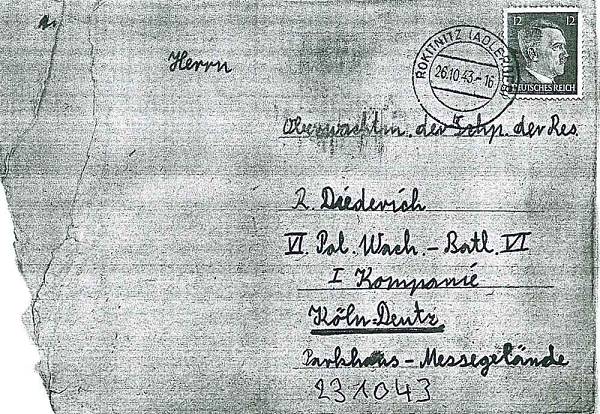 12 12
DEUTSCHES REICH
ROKITNITZ (ADLERGEB)
26.10.43.-16
Herrn
Oberwachtm. der Schp. der Res.
R. Diederich
VI. Pol. Wach.- Batl. VI
I Kompanie
Köln-Deutz
Parkhaus - Messegelände
231043